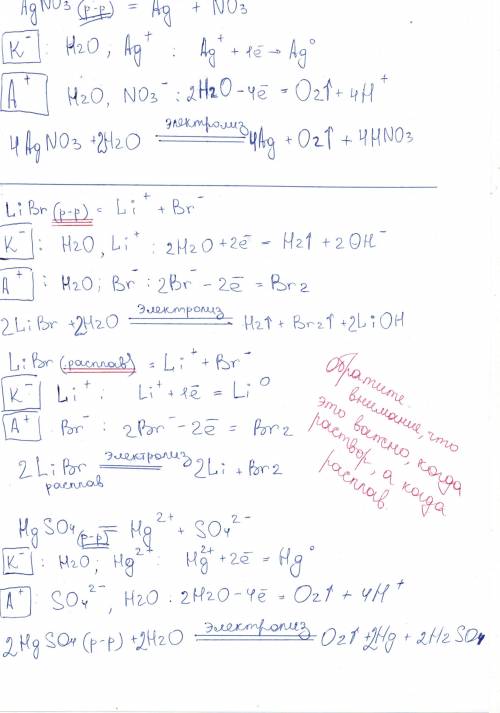 AgNO3 (р-р) = Ag + NO3
K⁻ : H2O, Ag⁺ : Ag⁺ + 1ē → Ag⁰
A⁺ H2O, NO3⁻ : 2H2O - 4ē = O2↑ + 4H⁺
4AgNO3 + 2H2O электролиз 4Ag + O2↑ + 4HNO3
LiBr (р-р) = Li⁺ + Br⁻
K⁻ : H2O, Li⁺ : 2H2O + 2ē = H2↑ + 2OH⁻
A⁺ : H2O; Br⁻ : 2Br⁻ - 2ē = Br2
2LiBr + 2H2O электролиз H2↑ + Br2↑ + 2LiOH
LiBr (расплав) = Li⁺ + Br⁻
K⁻ Li⁺ : Li⁺ + 1ē = Li⁰
A⁺ Br⁻ : 2Br⁻ - 2ē = Br2
2LiBr электролиз 2Li + Br2
расплав
Обратите
внимание, что
это важно, когда
раствор, а когда
расплав.
HgSO4 (р-р) = Hg²⁺ + SO4²⁻
K⁻ : H2O; Hg²⁺ : Hg²⁺ + 2ē = Hg⁰
A⁺ : SO4²⁻, H2O : 2H2O - 4ē = O2↑ + 4H⁺
2HgSO4 (р-р) + 2H2O электролиз O2↑ + 2Hg + 2H2SO4